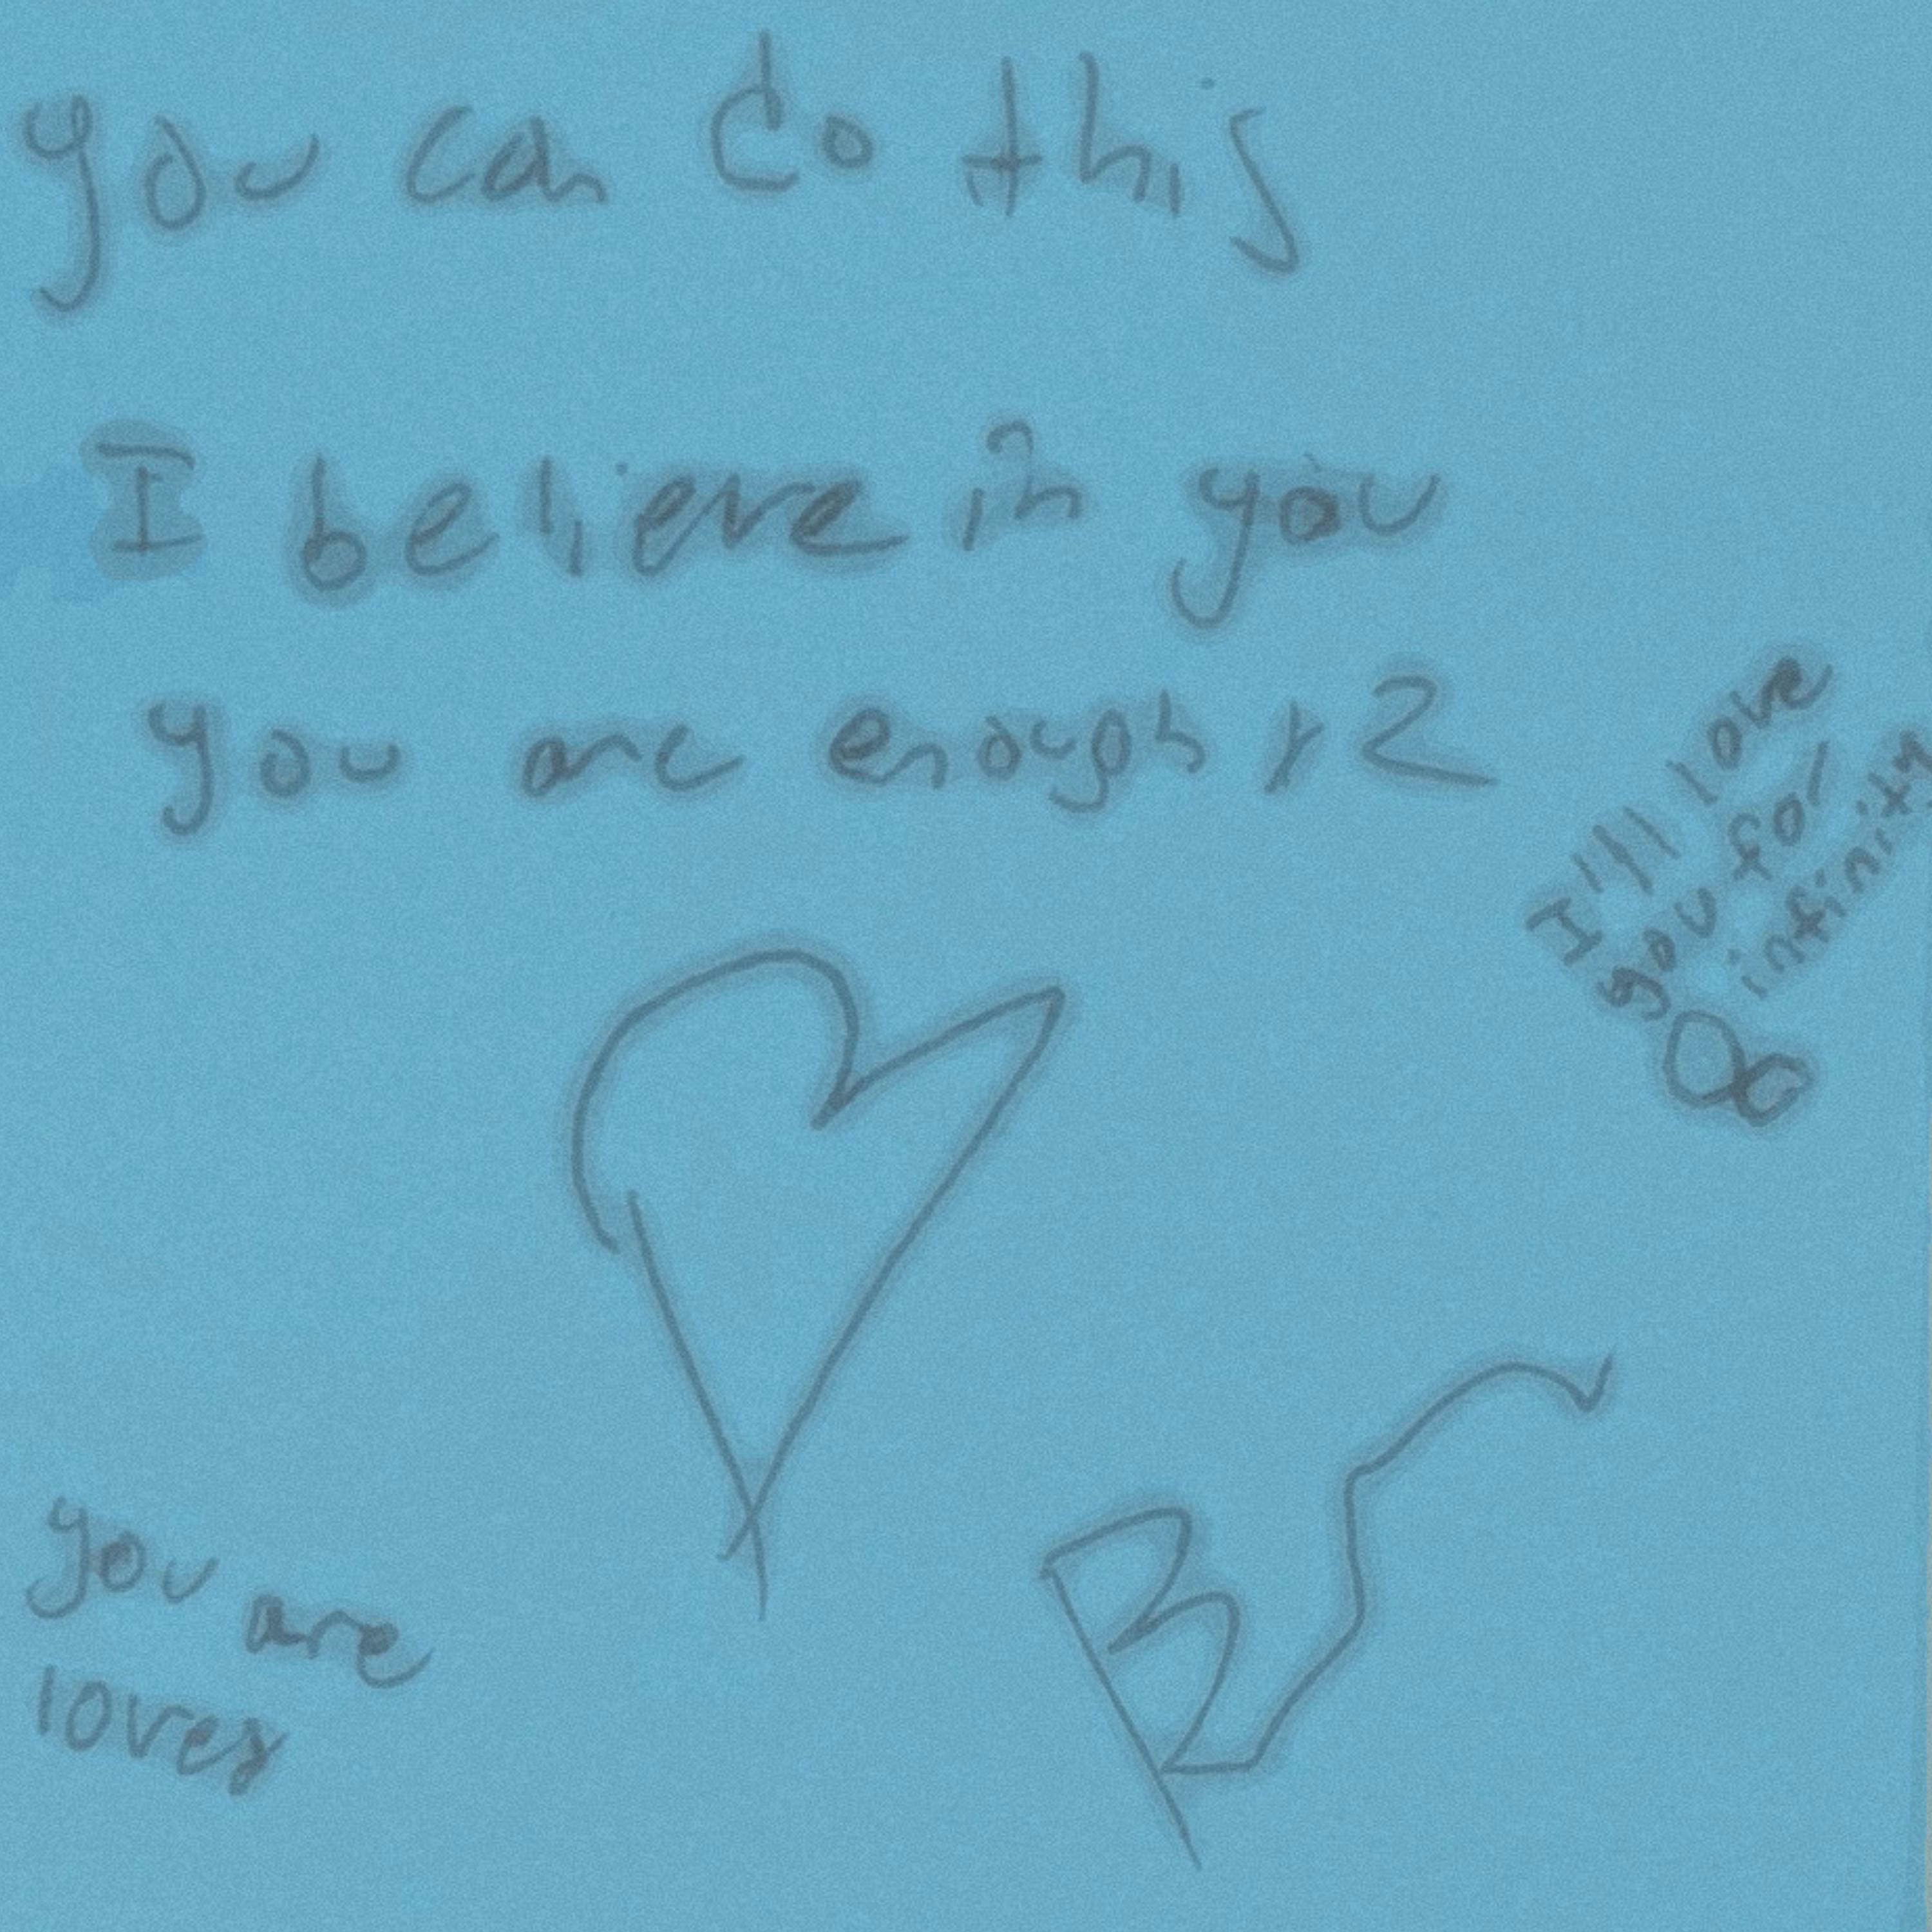 you can do this
I believe in you
you are enough x2
I'll love
you for
infinity
∞
you are
loves
B